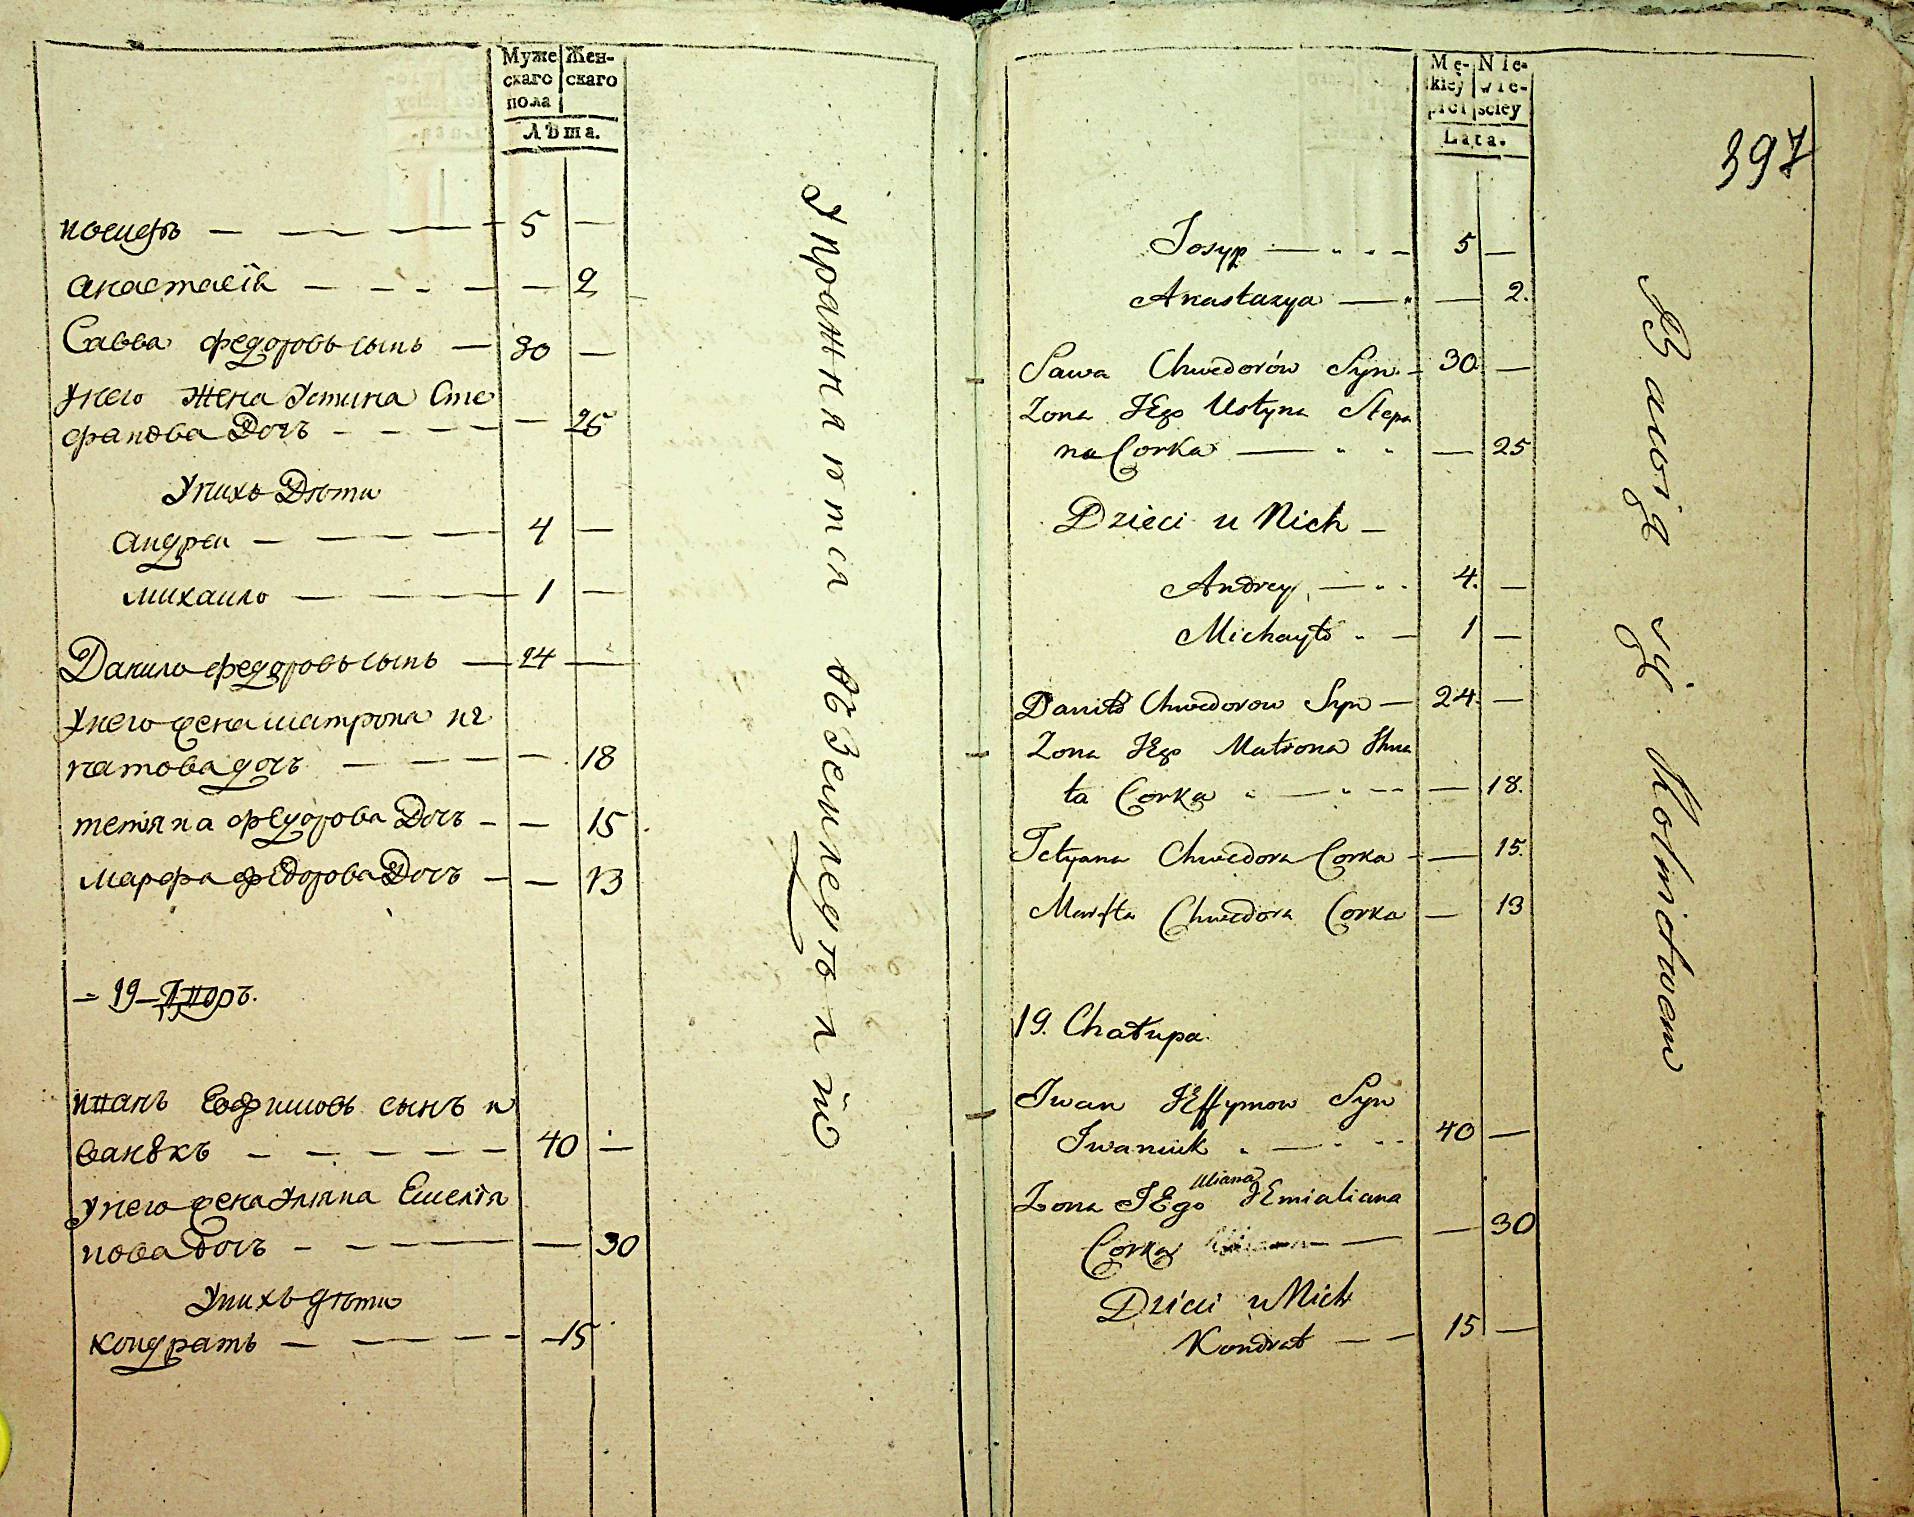 Муже
скаго
пола
Жен-
скаго
Лѣта.
иосифъ — — — — 5 —
анастасія — — - — — 2
Савва федоровъ сынъ — 30 —
Унего жена Устина Сте
фанова Дочъ — — — — — 25
Унихъ Дѣти
андреи — — — — 4 —
михаило — — — — 1 —
Данило федоровъ сынъ — 24 —
Унего жена матрона иг
натова дочъ — — — — — 18
тетяна федорова Дочъ — — 15
марфа федорова Дочъ — — 13
= 19 — Дворъ.
иванъ Евфимовъ сынъ и
ванюкъ — — — — — 40 —
Унего жена Уляна Емелія
нова дочъ — — — — — 30
Унихъ дѣти
кондратъ — — — — 15
Упражняются въ Земледѣліи
Mę-
kiey
płci
Nie-
wie-
sciey
Lata.
397
Josyp — " " — 5 —
Anastazya — " — 2.
Sawa Chwedorów Syn — 30 —
Zona JEgo Ustyna Stepa
na Corka — " " — 25
Dzieci u Nich —
Andrey, — " " 4. —
Michayło " — 1 —
Daniło Chwedorow Syn — 24. —
Zona JEgo Matrona Ihna
ta Corka " — " — — 18.
Tetyana Chwedora Corka — — 15.
Marfta Chwedora Corka — 13
19. Chałupa.
Jwan JEffymow Syn
Jwaniuk " — " — 40 —
Zona JEgo Uliana JEmialiana
Corka — — 30
Dzieci u Nich
Kondrat — — 15 —
Bawią się Rolnictwem